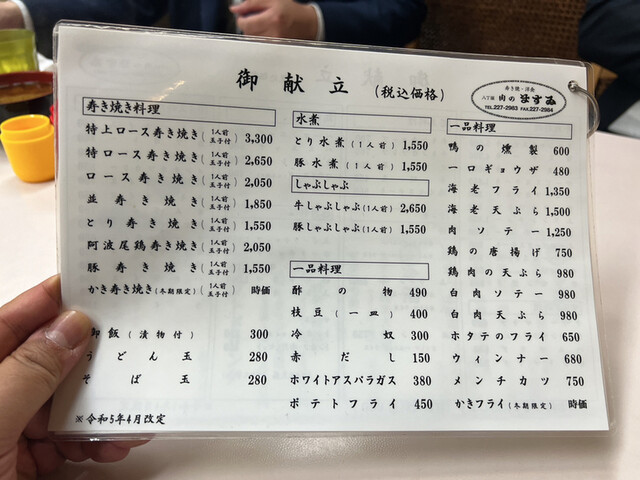 御献立 (税込価格)
寿き焼・洋食
八丁堀 肉のますゐ
TEL.227-2983 FAX.227-2984
寿き焼き料理
特上ロース寿き焼き(1人前 玉子付) 3,300
特ロース寿き焼き(1人前 玉子付) 2,650
ロース寿き焼き(1人前 玉子付) 2,050
並寿き焼き(1人前 玉子付) 1,850
とり寿き焼き(1人前 玉子付) 1,550
阿波尾鶏寿き焼き(1人前 玉子付) 2,050
豚寿き焼き(1人前 玉子付) 1,550
かき寿き焼き(冬期限定)(1人前 玉子付) 時価
御飯(漬物付) 300
うどん玉 280
そば玉 280
※令和5年4月改定
水煮
とり水煮(1人前) 1,550
豚水煮(1人前) 1,550
しゃぶしゃぶ
牛しゃぶしゃぶ(1人前) 2,650
豚しゃぶしゃぶ(1人前) 1,550
一品料理
酢の物 490
枝豆(一皿) 400
冷奴 300
赤だし 150
ホワイトアスパラガス 380
ポテトフライ 450
一品料理
鴨の燻製 600
一口ギョウザ 480
海老フライ 1,350
海老天ぷら 1,500
肉ソテー 1,250
鶏の唐揚げ 750
鶏肉の天ぷら 980
白肉ソテー 980
白肉天ぷら 980
ホタテのフライ 650
ウィンナー 680
メンチカツ 750
かきフライ(冬期限定) 時価